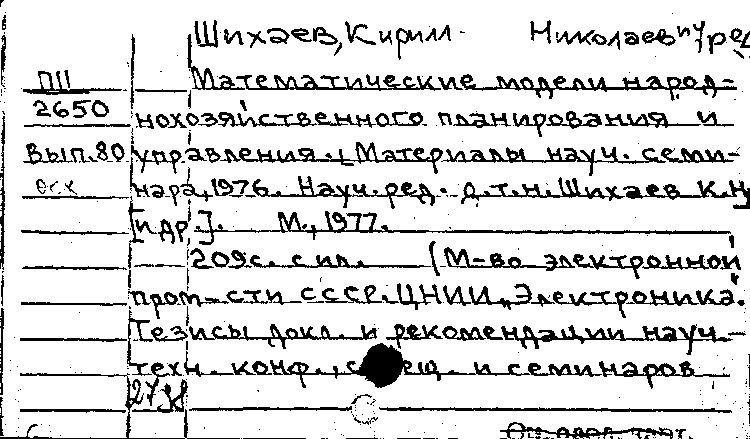 Шихаев, Кирилл Николаевич, ред
ПII
2650
Вып.80
Математические модели народ-
нохозяйственного планирования и
управления. [Материалы науч. семи-
нара, 1976. Науч. ред. д.т.н. Шихаев К.Н.
[и др.]. М., 1977.
209с. с ил. (М-во электронной
пром-сти СССР. ЦНИИ "Электроника".
Тезисы докл. и рекомендации науч.-
техн. конф., совещ. и семинаров